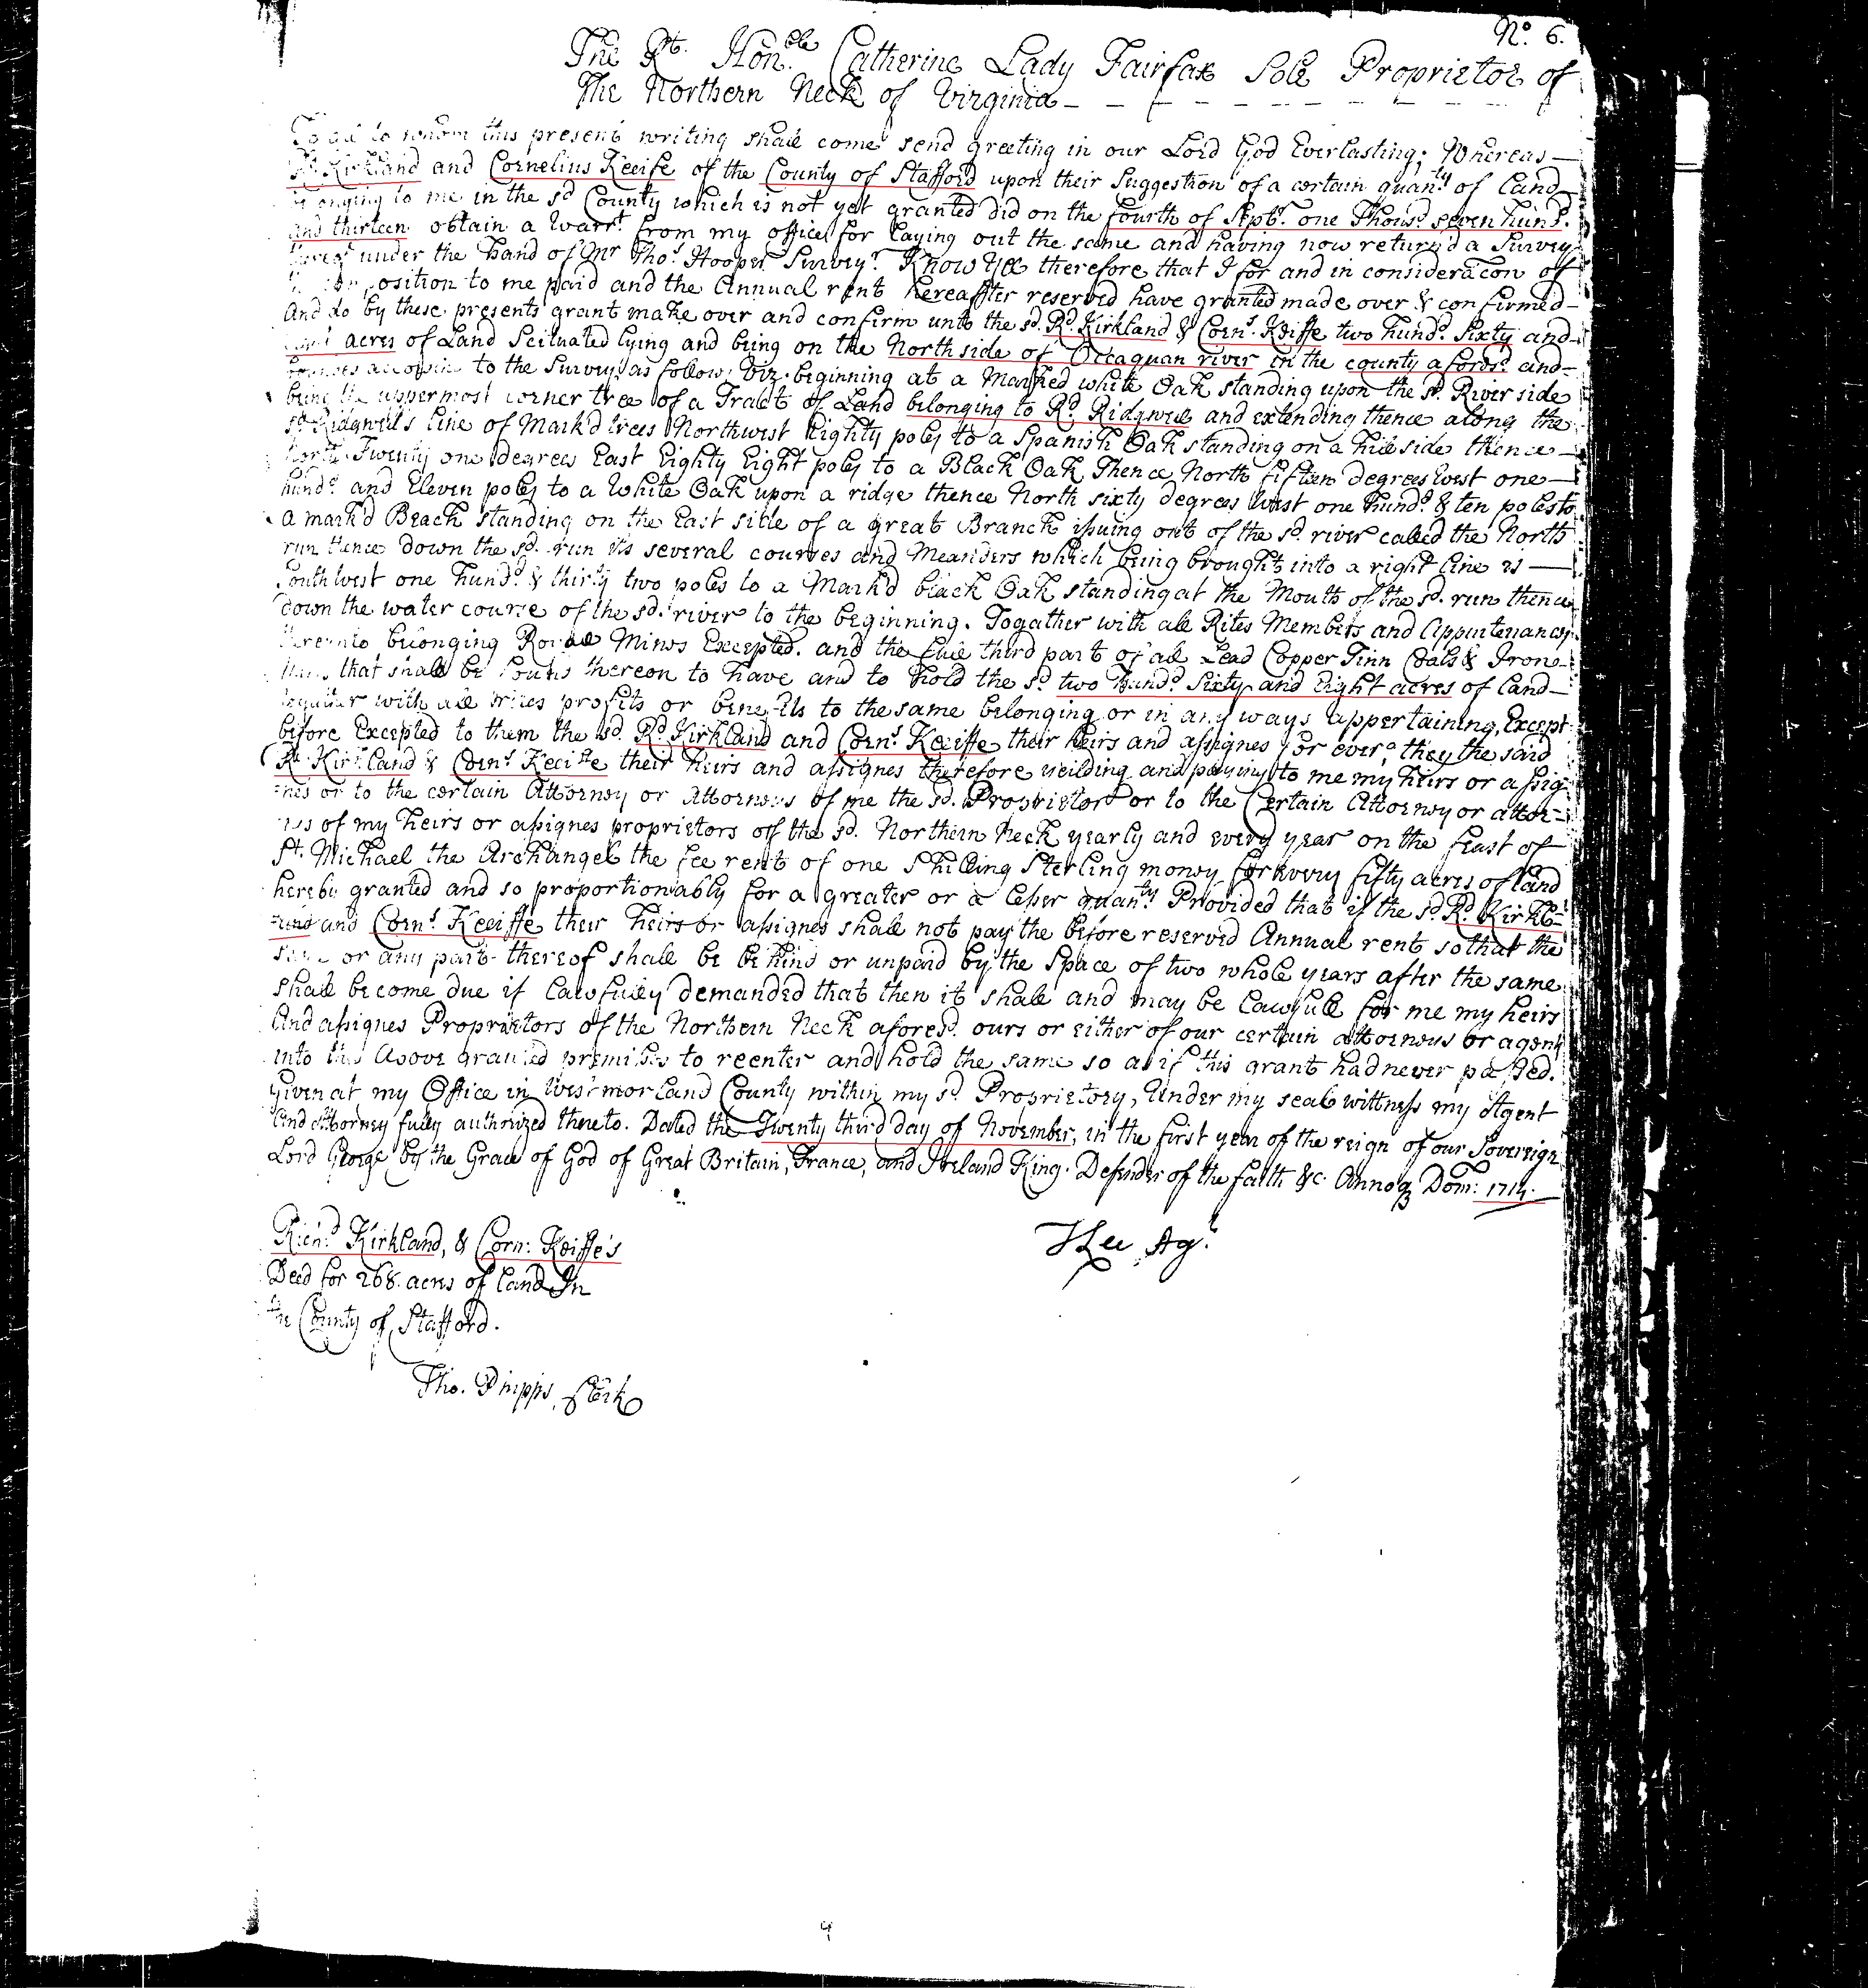 No. 6.
The Rt. Honble Catherine Lady Fairfax Sole Proprietor of
The Northern Neck of Virginia
To all to whom this present writing shall come send greeting in our Lord God Everlasting; Whereas
Rd. Kirkland and Cornelius Keeife of the County of Stafford upon their Suggestion of a certain quanty of Land
belonging to me in the sd County which is not yet granted did on the fourth of Septr. one Thousd. seven hund.
and thirteen obtain a Warrt. from my office for laying out the same and having now return'd a Survey
thereof under the hand of Mr Thos. Hooper Surveyr. Know Yee therefore that I for and in consideracon of
the composition to me paid and the Annual rent hereaffter reserved have granted made over & confirmed
And do by these presents grant make over and confirm unto the sd. Rd. Kirkland & Corns. Keiffe two hundd. Sixty and
eight acres of Land Scituated lying and being on the North side of Occaquan river in the county aforesd. and
bounded according to the Survey as follow: Viz. beginning at a Marked white Oak standing upon the sd. River side
being the uppermost corner tree of a Tract of Land belonging to Rd. Ridgwell and extending thence along the
sd. Ridgwell's line of Mark'd trees Northwest Eighty poles to a Spanish Oak standing on a hill side thence
North Twenty one degrees East Eighty Eight poles to a Black Oak Thence North fifteen degrees West one
hundd. and Eleven poles to a White Oak upon a ridge thence North sixty degrees West one hundd. & ten poles to
a mark'd Beach standing on the East side of a great Branch issuing out of the sd. river called the North
run thence down the sd. run its several courses and Meanders which being brought into a right line is
Southwest one hundd. & thirty two poles to a Mark'd black Oak standing at the Mouth of the sd. run thence
down the water course of the sd. river to the beginning. Togather with all Rites Members and Appurtenances
thereunto belonging Royall Mines Excepted. and the full third part of all Lead Copper Tinn Coals & Iron
Mines that shall be found thereon to have and to hold the sd. two hundd. Sixty and Eight acres of land
together with all rites profits or benefits to the same belonging or in any ways appertaining, Except
before Excepted to them the sd. Rd. Kirkland and Corns. Keeiffe their heirs and assignes for ever, they the said
Rd. Kirkland & Corns. Keeiffe their heirs and assignes therefore yeilding and paying to me my heirs or assig
nes or to the certain Attorney or Attorneys of me the sd. Proprietor or to the Certain Attorney or attor-
neys of my heirs or assignes proprietors of the sd. Northern Neck yearly and every year on the feast of
St. Michael the Archangel the fee rent of one Shilling Sterling money for every fifty acres of land
hereby granted and so proportionably for a greater or a lesser quanty. Provided that if the sd. Rd. Kirkl-
and and Corns. Keeiffe their heirs or assignes shall not pay the before reserved Annual rent so that the
same or any part thereof shall be behind or unpaid by the Space of two whole years after the same
shall become due if lawfully demanded that then it shall and may be lawfull for me my heirs
And assignes Proprietors of the Northern Neck aforesd. ours or either of our certain attorneys or agents
into the above granted premises to reenter and hold the same so as if this grant had never passed.
Given at my Office in Westmorland County within my sd. Proprietory, Under my seal wittness my Agent
and Attorney fully authorized thereto. Dated the Twenty third day of November, in the first year of the reign of our Sovereign
Lord George by the Grace of God of Great Britain, France, and Ireland King. Defender of the faith &c. Annoq Dom: 1714.
Richd. Kirkland, & Corn: Keiffe's
Deed for 268. acres of land In
the County of Stafford.
TLee Agt.
Tho. Phipps Clerk